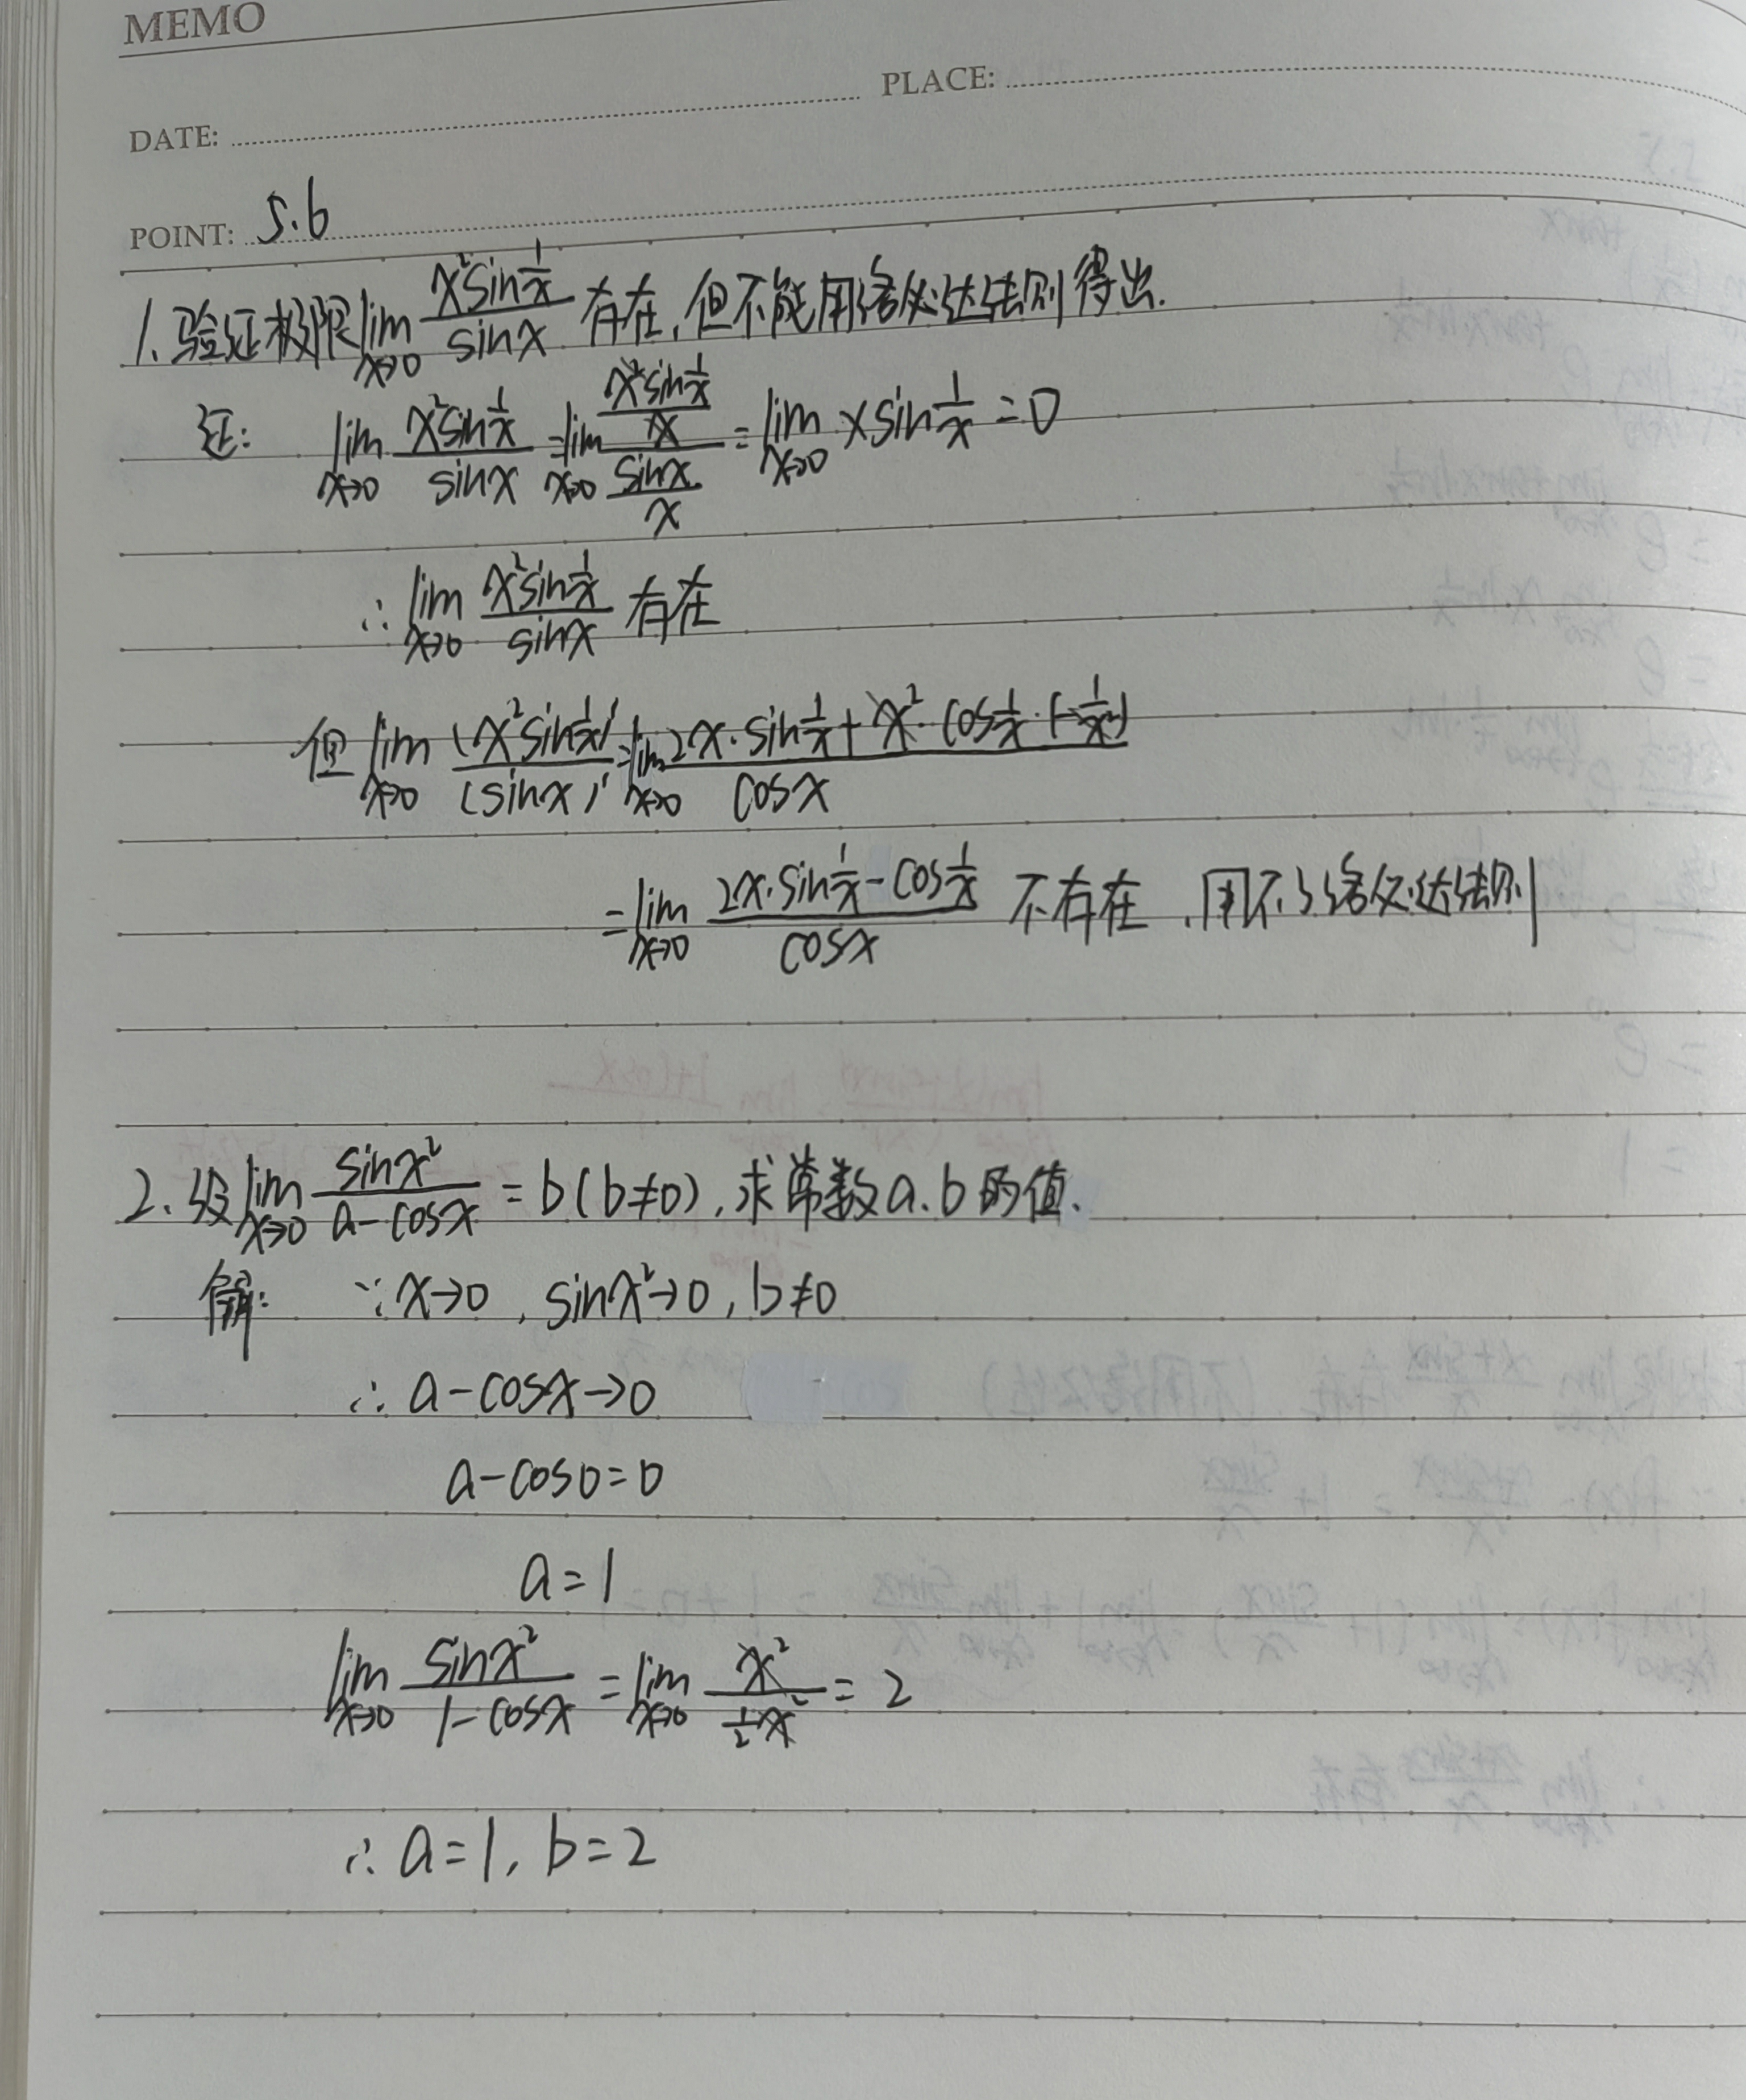 MEMO
PLACE:
DATE:
POINT: 5.6
1. 验证极限 lim_{x→0} \frac{x²sin\frac{1}{x}}{sinx} 存在,但不能用洛必达法则得出.
证: lim_{x→0} \frac{x²sin\frac{1}{x}}{sinx} = lim_{x→0} \frac{\frac{x²sin\frac{1}{x}}{x}}{\frac{sinx}{x}} = lim_{x→0} xsin\frac{1}{x} = 0
∴ lim_{x→0} \frac{x²sin\frac{1}{x}}{sinx} 存在
但 lim_{x→0} \frac{(x²sin\frac{1}{x})'}{(sinx)'} = lim_{x→0} \frac{2x·sin\frac{1}{x}+x²·cos\frac{1}{x}·(-\frac{1}{x²})}{cosx}
= lim_{x→0} \frac{2x·sin\frac{1}{x}-cos\frac{1}{x}}{cosx} 不存在,用不了洛必达法则
2. 设 lim_{x→0} \frac{sinx²}{a-cosx} = b(b≠0),求常数a.b的值.
解: ∵x→0,sinx²→0,b≠0
∴ a-cosx→0
a-cos0=0
a=1
lim_{x→0} \frac{sinx²}{1-cosx} = lim_{x→0} \frac{x²}{\frac{1}{2}x²} = 2
∴ a=1, b=2